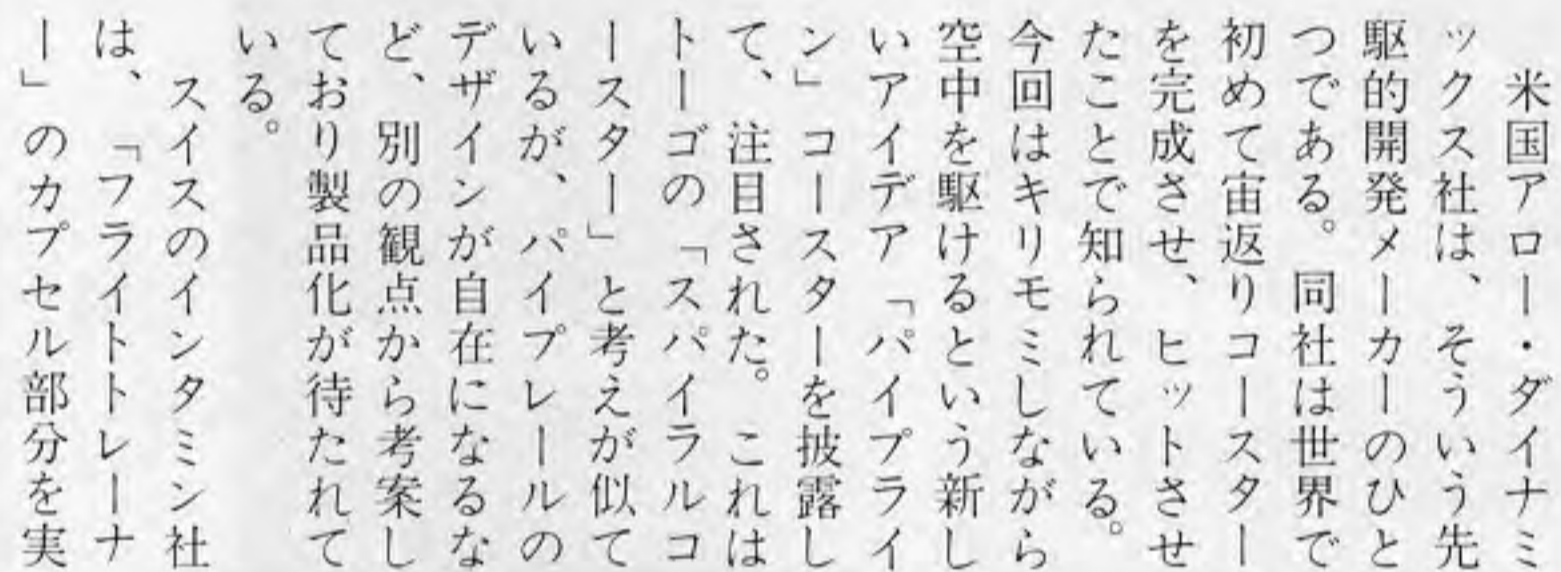 米国アロー・ダイナミ
ックス社は、そういう先
駆的開発メーカーのひと
つである。同社は世界で
初めて宙返りコースター
を完成させ、ヒットさせ
たことで知られている。
今回はキリモミしながら
空中を駆けるという新し
いアイデア「パイプライ
ン」コースターを披露し
て、注目された。これは
トーゴの「スパイラルコ
ースター」と考えが似て
いるが、パイプレールの
デザインが自在になるな
ど、別の観点から考案し
ており製品化が待たれて
いる。
スイスのインタミン社
は、「フライトトレーナ
ー」のカプセル部分を実